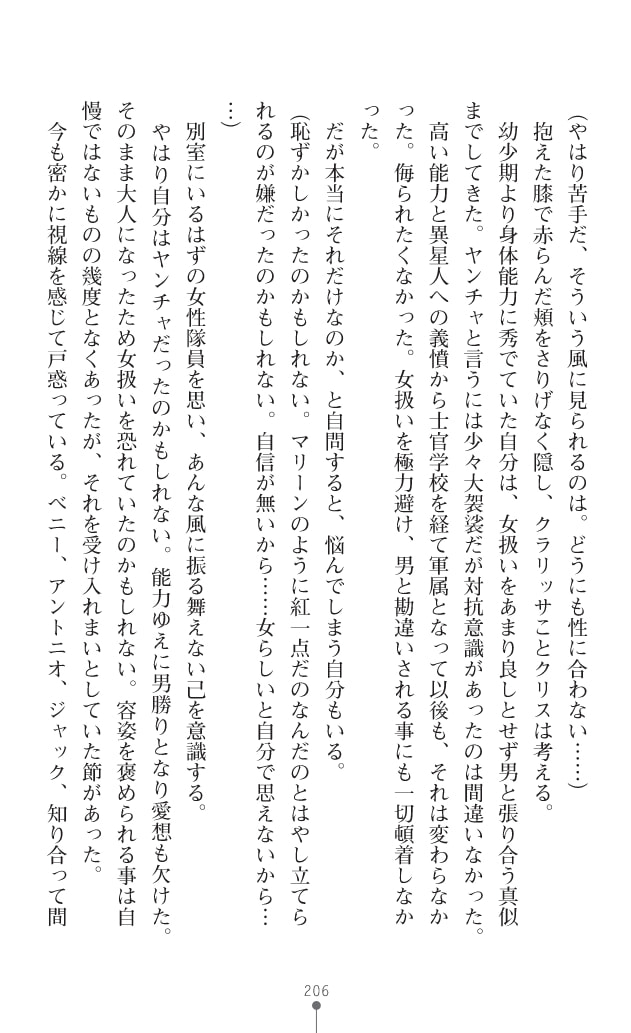 (やはり苦手だ、そういう風に見られるのは。どうにも性に合わない……)
抱えた膝で赤らんだ頬をさりげなく隠し、クラリッサことクリスは考える。
幼少期より身体能力に秀でていた自分は、女扱いをあまり良しとせず男と張り合う真似
までしてきた。ヤンチャと言うには少々大袈裟だが対抗意識があったのは間違いなかった。
高い能力と異星人への義憤から士官学校を経て軍属となって以後も、それは変わらなか
った。侮られたくなかった。女扱いを極力避け、男と勘違いされる事にも一切頓着しなか
った。
だが本当にそれだけなのか、と自問すると、悩んでしまう自分もいる。
(恥ずかしかったのかもしれない。マリーンのように紅一点だのなんだのとはやし立てら
れるのが嫌だったのかもしれない。自信が無いから……女らしいと自分で思えないから…
…)
別室にいるはずの女性隊員を思い、あんな風に振る舞えない己を意識する。
やはり自分はヤンチャだったのかもしれない。能力ゆえに男勝りとなり愛想も欠けた。
そのまま大人になったため女扱いを恐れていたのかもしれない。容姿を褒められる事は自
慢ではないものの幾度となくあったが、それを受け入れまいとしていた節があった。
今も密かに視線を感じて戸惑っている。ベニー、アントニオ、ジャック、知り合って間
206